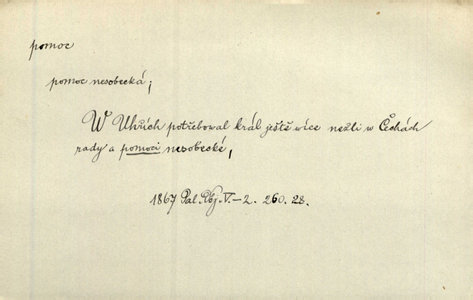 pomoc
pomoc nesobecká;
W Uhřích potřebowal král ještě wíce nežli w Čechách
rady a pomoci nesobecké,
1867 Pal. Děj. V.–2. 260. 28.